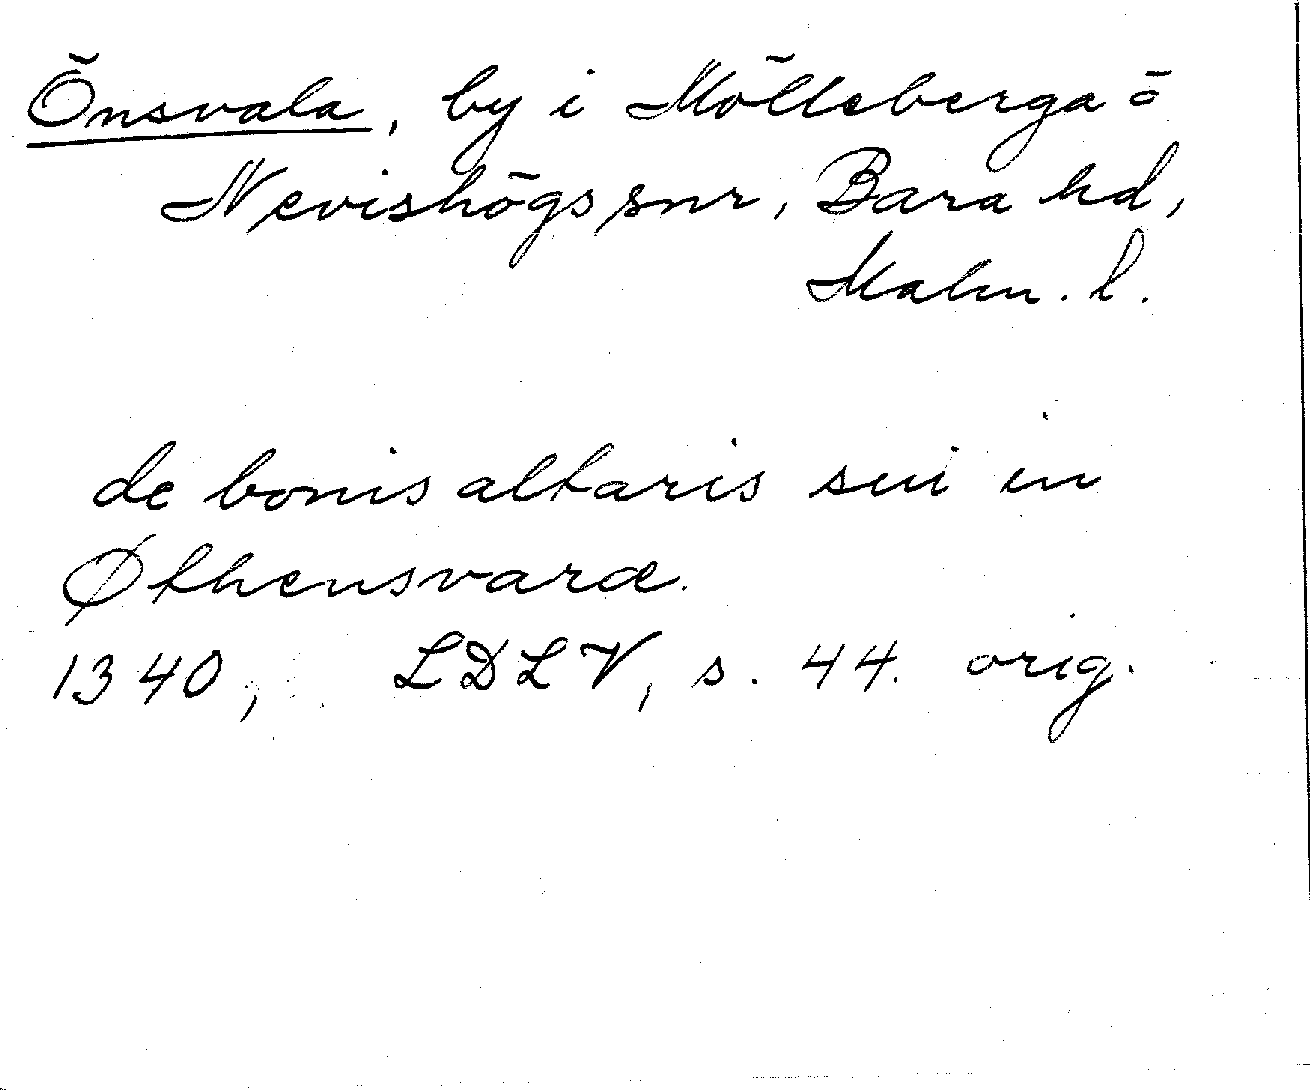 Önsvala, by i Mölleberga o
Nevishögs snr, Bara hd,
Malm. l.
de bonis altaris sui in
Øthensvaræ.
1340, LDLV, s. 44. orig.